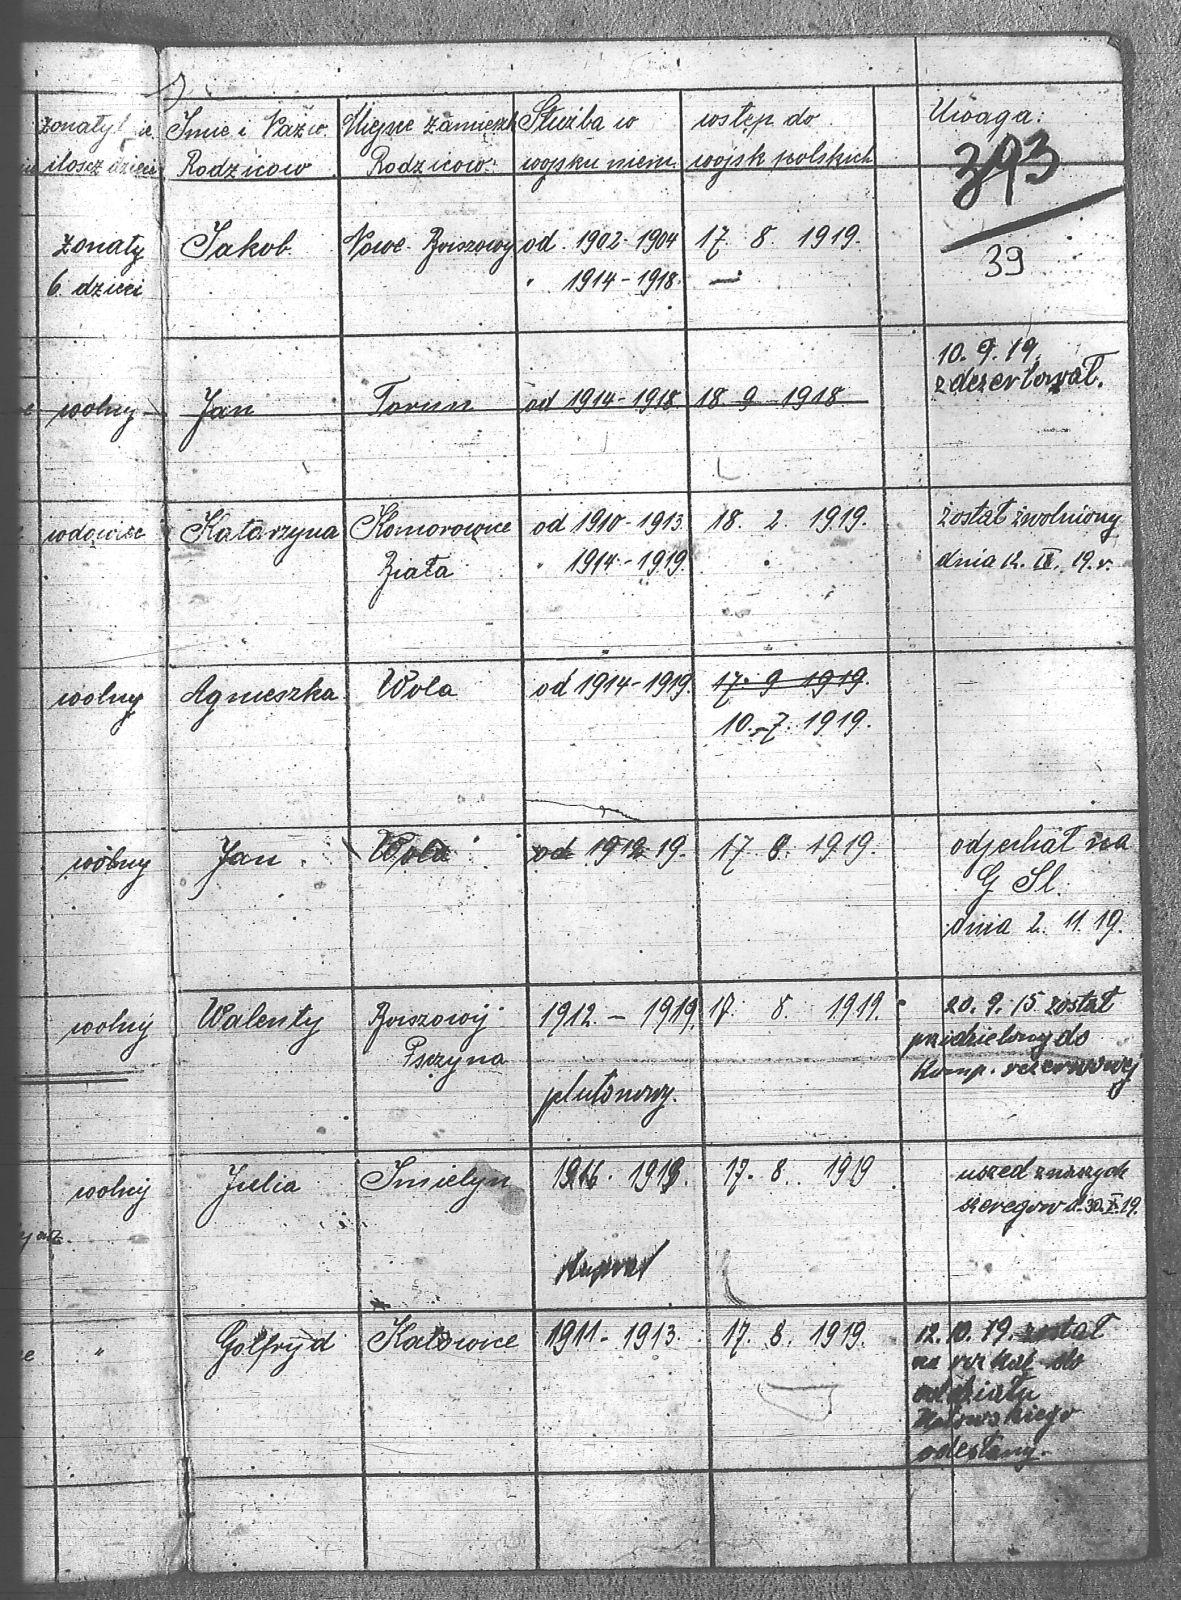 żonaty Imie i Nazw. Miejsc zamieszk Służba w wstęp do Uwaga:
iloscz dzieci Rodzicow Rodzicow: wojsku niem. wojsk polskich 393
39
żonaty Jakob. Nowe- od 1902-1904 17. 8. 1919.
6. dzieci " 1914-1918. —
10. 9. 19.
zdezertował.
wolny Jan Torun od 1914-1918. 18 9 1918
Katarzyna Komorowice od 1910-1913. 18. 2. 1919. został zwolniony
" 1914-1919 " dnia 12. IX. 19. r.
wolny Agnieszka Wola od 1914-1919. 17. 9 1919.
10. 7. 1919.
wolny Jan Wola od 1912 19. 17. 8. 1919. odjechał na
G Sl.
dnia 2. 11. 19.
wolny Walenty 1912 – 1919. 17. 8. 1919. 20. 9. 15 został
Psczyna przidzielony do
plutonowy. Komp. rezerwowej
wolny Julia Imielyn 1916. 1919 17. 8. 1919 uszed znaszych
szeregow d. 30. X. 19.
Kapral
" Golfryd Katowice 1911 - 1913. 17. 8. 1919. 12. 10. 19. został
na do
oddziału
odesłany.